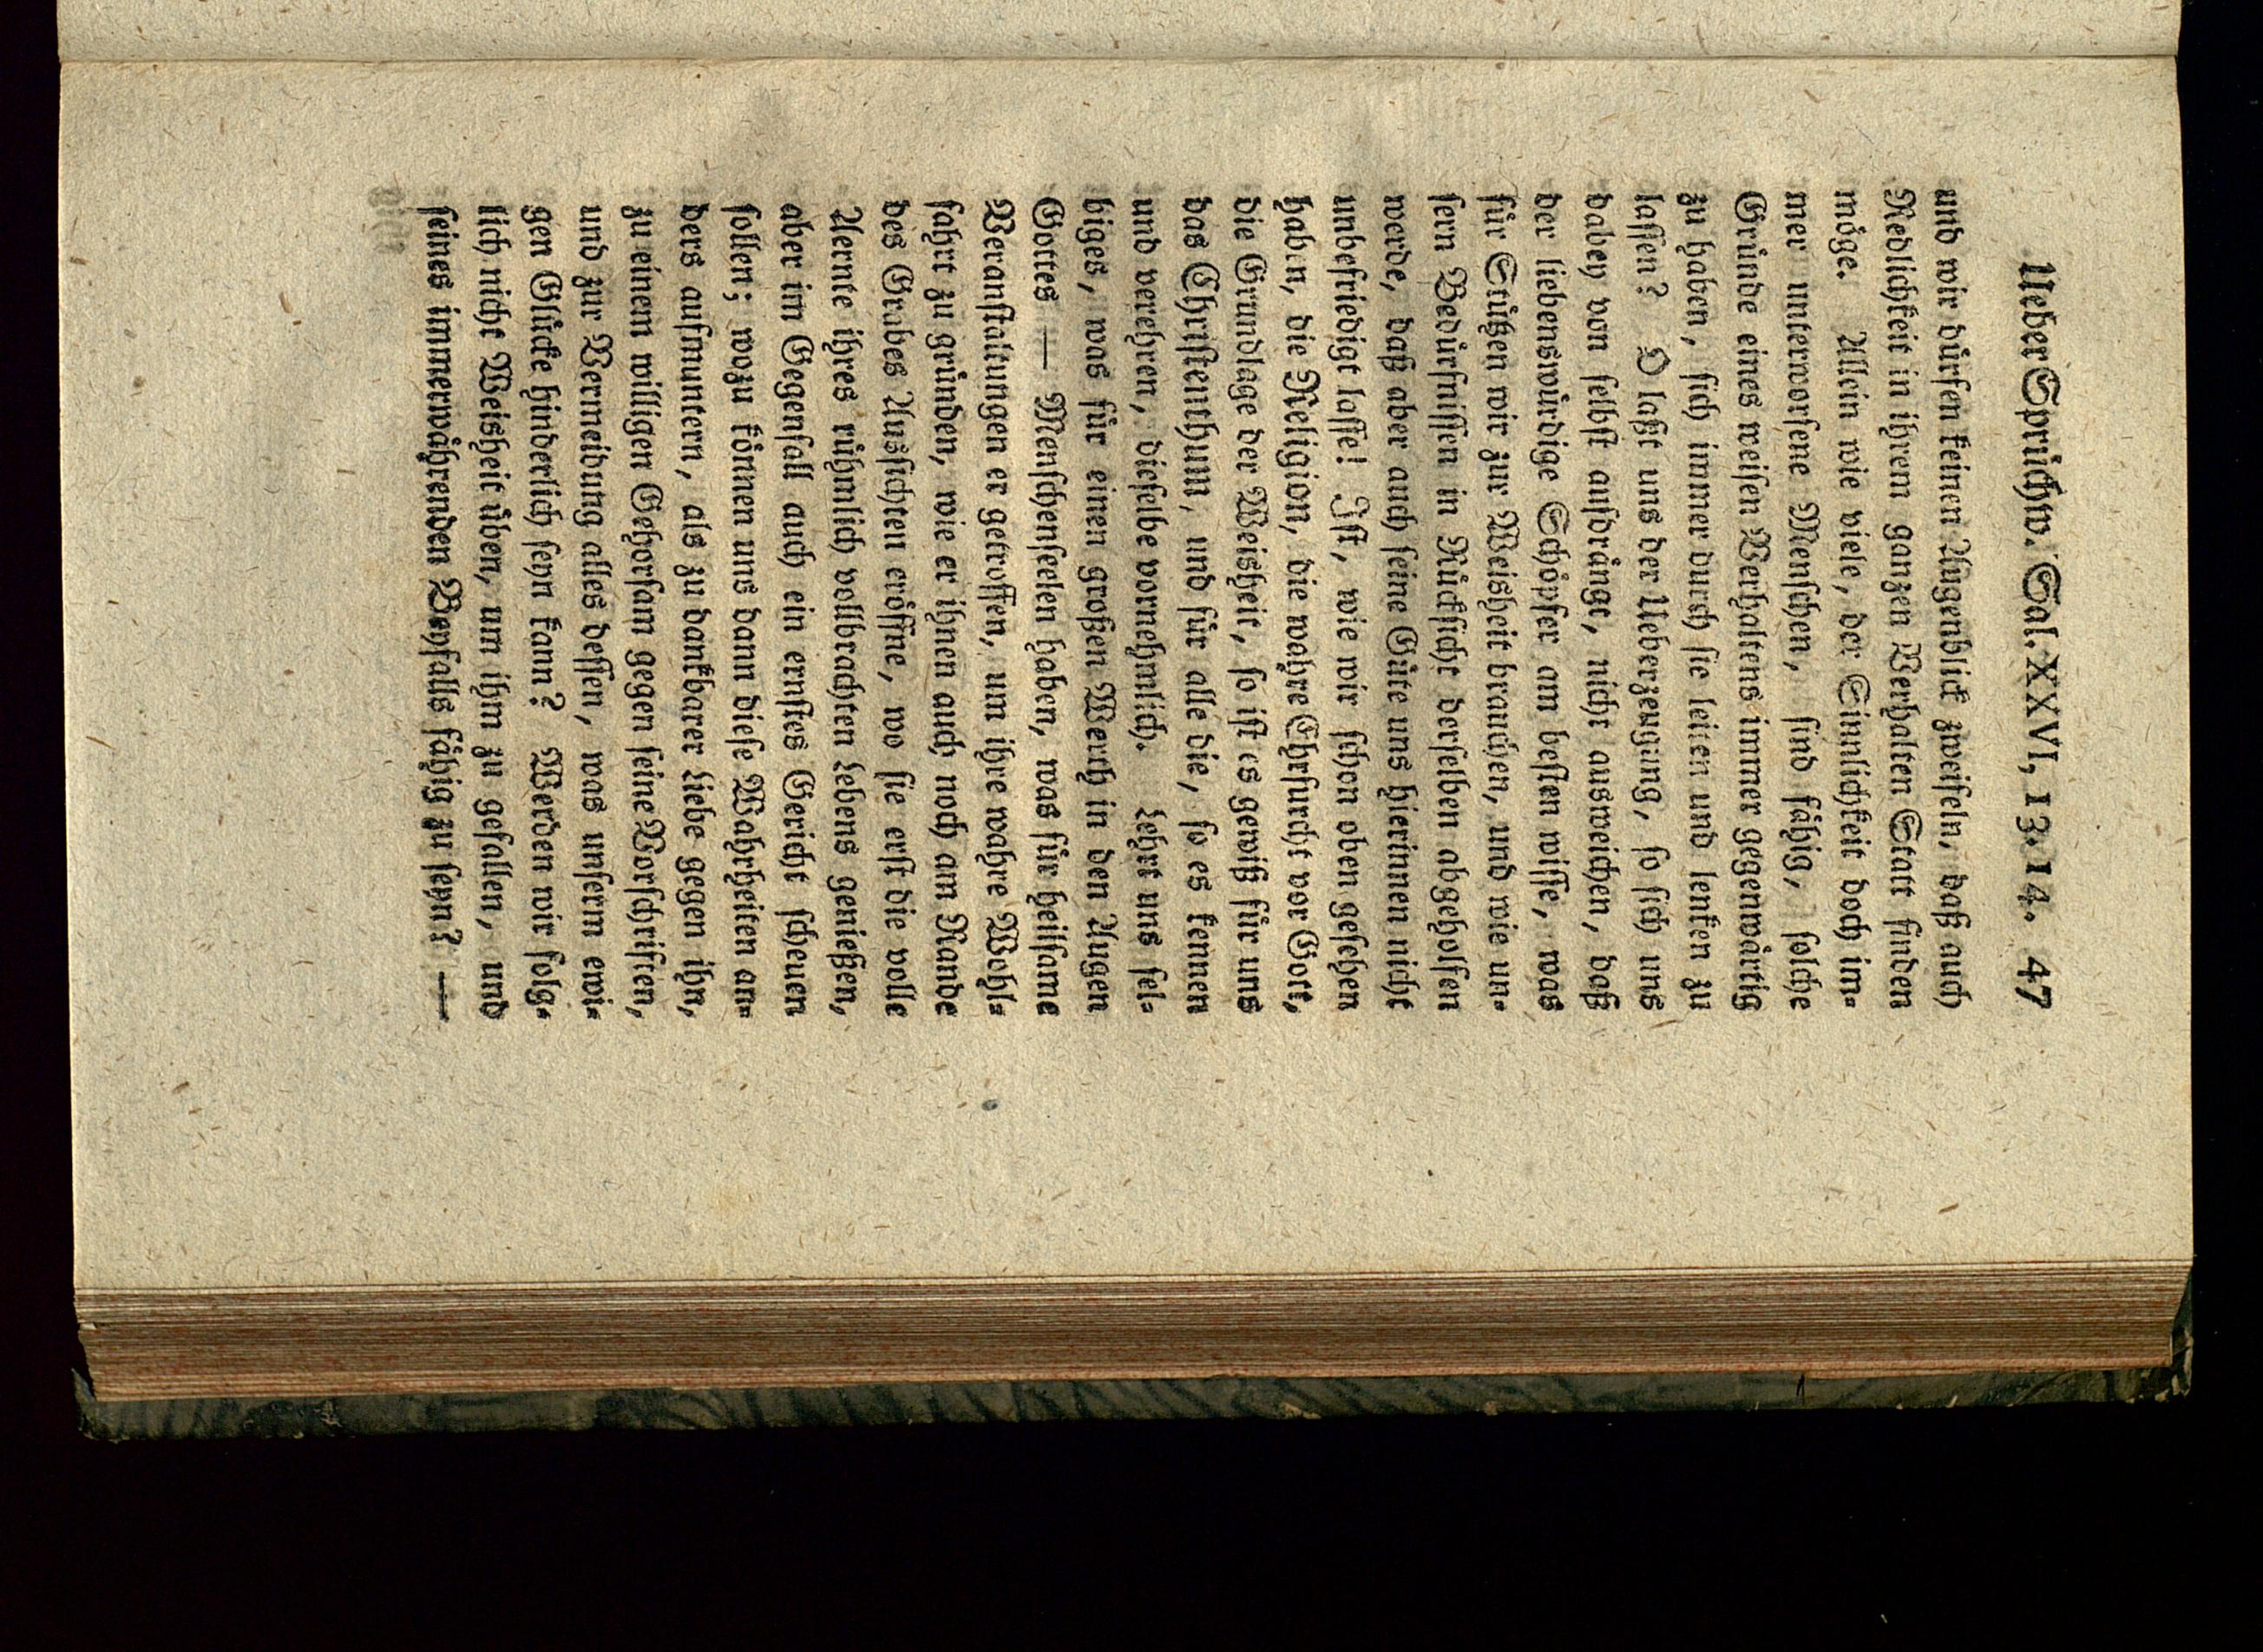 Ueber Sprüchw. Sal. XXVI, 13. 14. 47
und wir dürfen keinen Augenblick zweifeln, daß auch
Redlichkeit in ihrem ganzen Verhalten Statt finden
möge. Allein wie viele, der Sinnlichkeit doch im⸗
mer unterworfene Menschen, sind fähig, solche
Gründe eines weisen Verhaltens immer gegenwärtig
zu haben, sich immer durch sie leiten und lenken zu
lassen? O laßt uns der Ueberzeugung, so sich uns
dabey von selbst aufdrängt, nicht ausweichen, daß
der liebenswürdige Schöpfer am besten wisse, was
für Stützen wir zur Weisheit brauchen, und wie un⸗
sern Bedürfnissen in Rücksicht derselben abgeholfen
werde, daß aber auch seine Güte uns hierinnen nicht
unbefriedigt lasse! Ist, wie wir schon oben gesehen
haben, die Religion, die wahre Ehrfurcht vor Gott,
die Grundlage der Weisheit, so ist es gewiß für uns
das Christenthum, und für alle die, so es kennen
und verehren, dieselbe vornehmlich. Lehrt uns sel⸗
biges, was für einen großen Werth in den Augen
Gottes — Menschenseelen haben, was für heilsame
Veranstaltungen er getroffen, um ihre wahre Wohl⸗
fahrt zu gründen, wie er ihnen auch noch am Rande
des Grabes Aussichten eröffne, wo sie erst die volle
Aernte ihres rühmlich vollbrachten Lebens genießen,
aber im Gegenfall auch ein ernstes Gericht scheuen
sollen; wozu können uns dann diese Wahrheiten an⸗
ders aufmuntern, als zu dankbarer Liebe gegen ihn,
zu einem willigen Gehorsam gegen seine Vorschriften,
und zur Vermeidung alles dessen, was unserm ewi⸗
gen Glücke hinderlich seyn kann? Werden wir folg⸗
lich nicht Weisheit üben, um ihm zu gefallen, und
seines immerwährenden Beyfalls fähig zu seyn? —